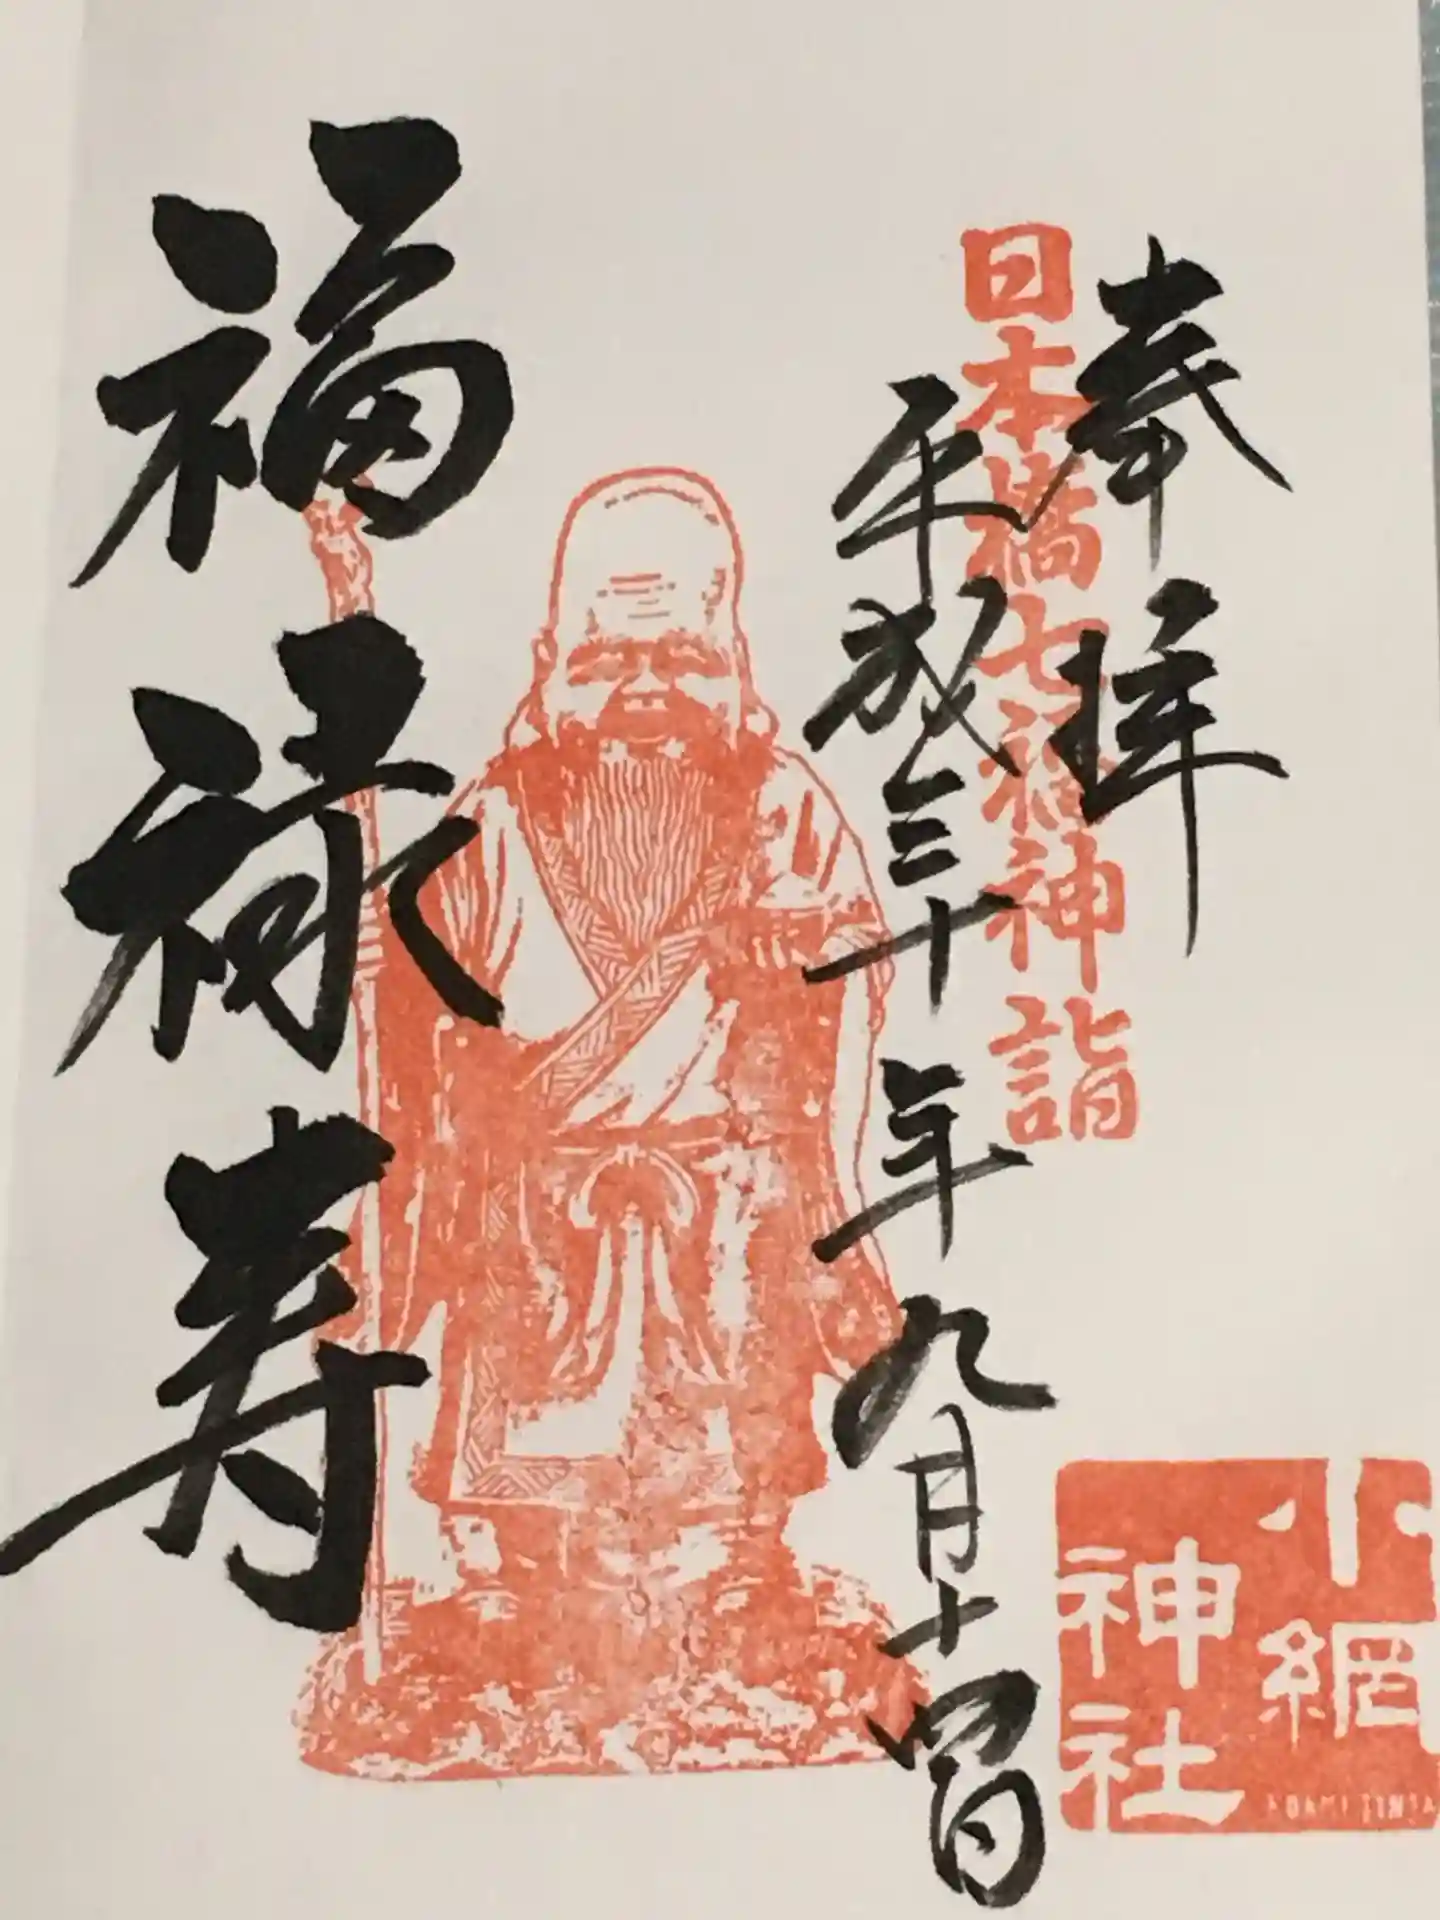 奉拝
日本橋七福神詣
平成三十年九月十四日
福禄寿
小網
神社
KOAMI JINJA